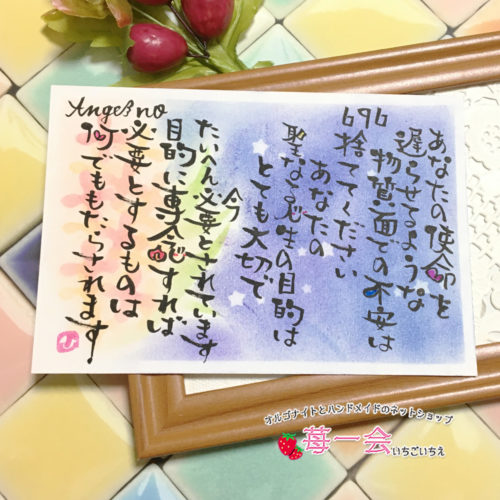 Angel no
696
あなたの使命を
遅らせるような
物質面での不安は
捨ててください
あなたの
聖なる人生の目的は
とても大切で
今
たいへん必要とされています
目的に専念すれば
必要とするものは
何でももたらされます
ひ
オルゴナイトとハンドメイドのネットショップ
苺一会
いちごいちえ